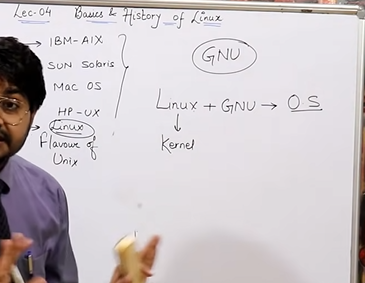 Lec-04 Basics & History of Linux
→ IBM-AIX
SUN Solaris
Mac OS
HP-UX
→ Linux
Flavour of
Unix
GNU
Linux + GNU → O.S
↓
Kernel